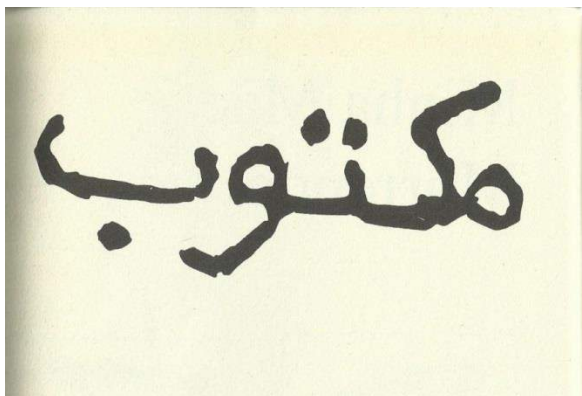 مكتوب